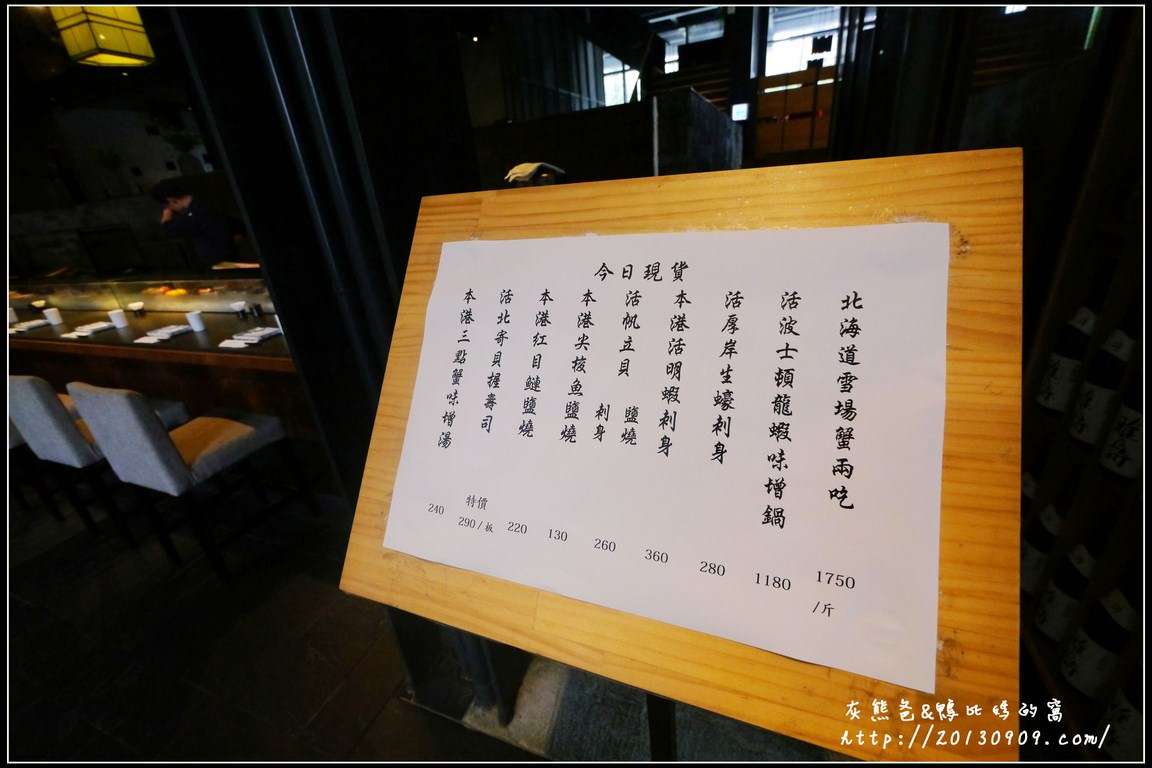 今日現貨
北海道雪場蟹兩吃 1750/斤
活波士頓龍蝦味增鍋 1180
活厚岸生蠔刺身 280
本港活明蝦刺身 360
活帆立貝 鹽燒 刺身 260
本港尖梭魚鹽燒 130
本港紅目鰱鹽燒 220
活北寄貝握壽司 特價 290/板
本港三點蟹味增湯 240
灰熊爸&鴨比媽的窩
http://20130909.com/